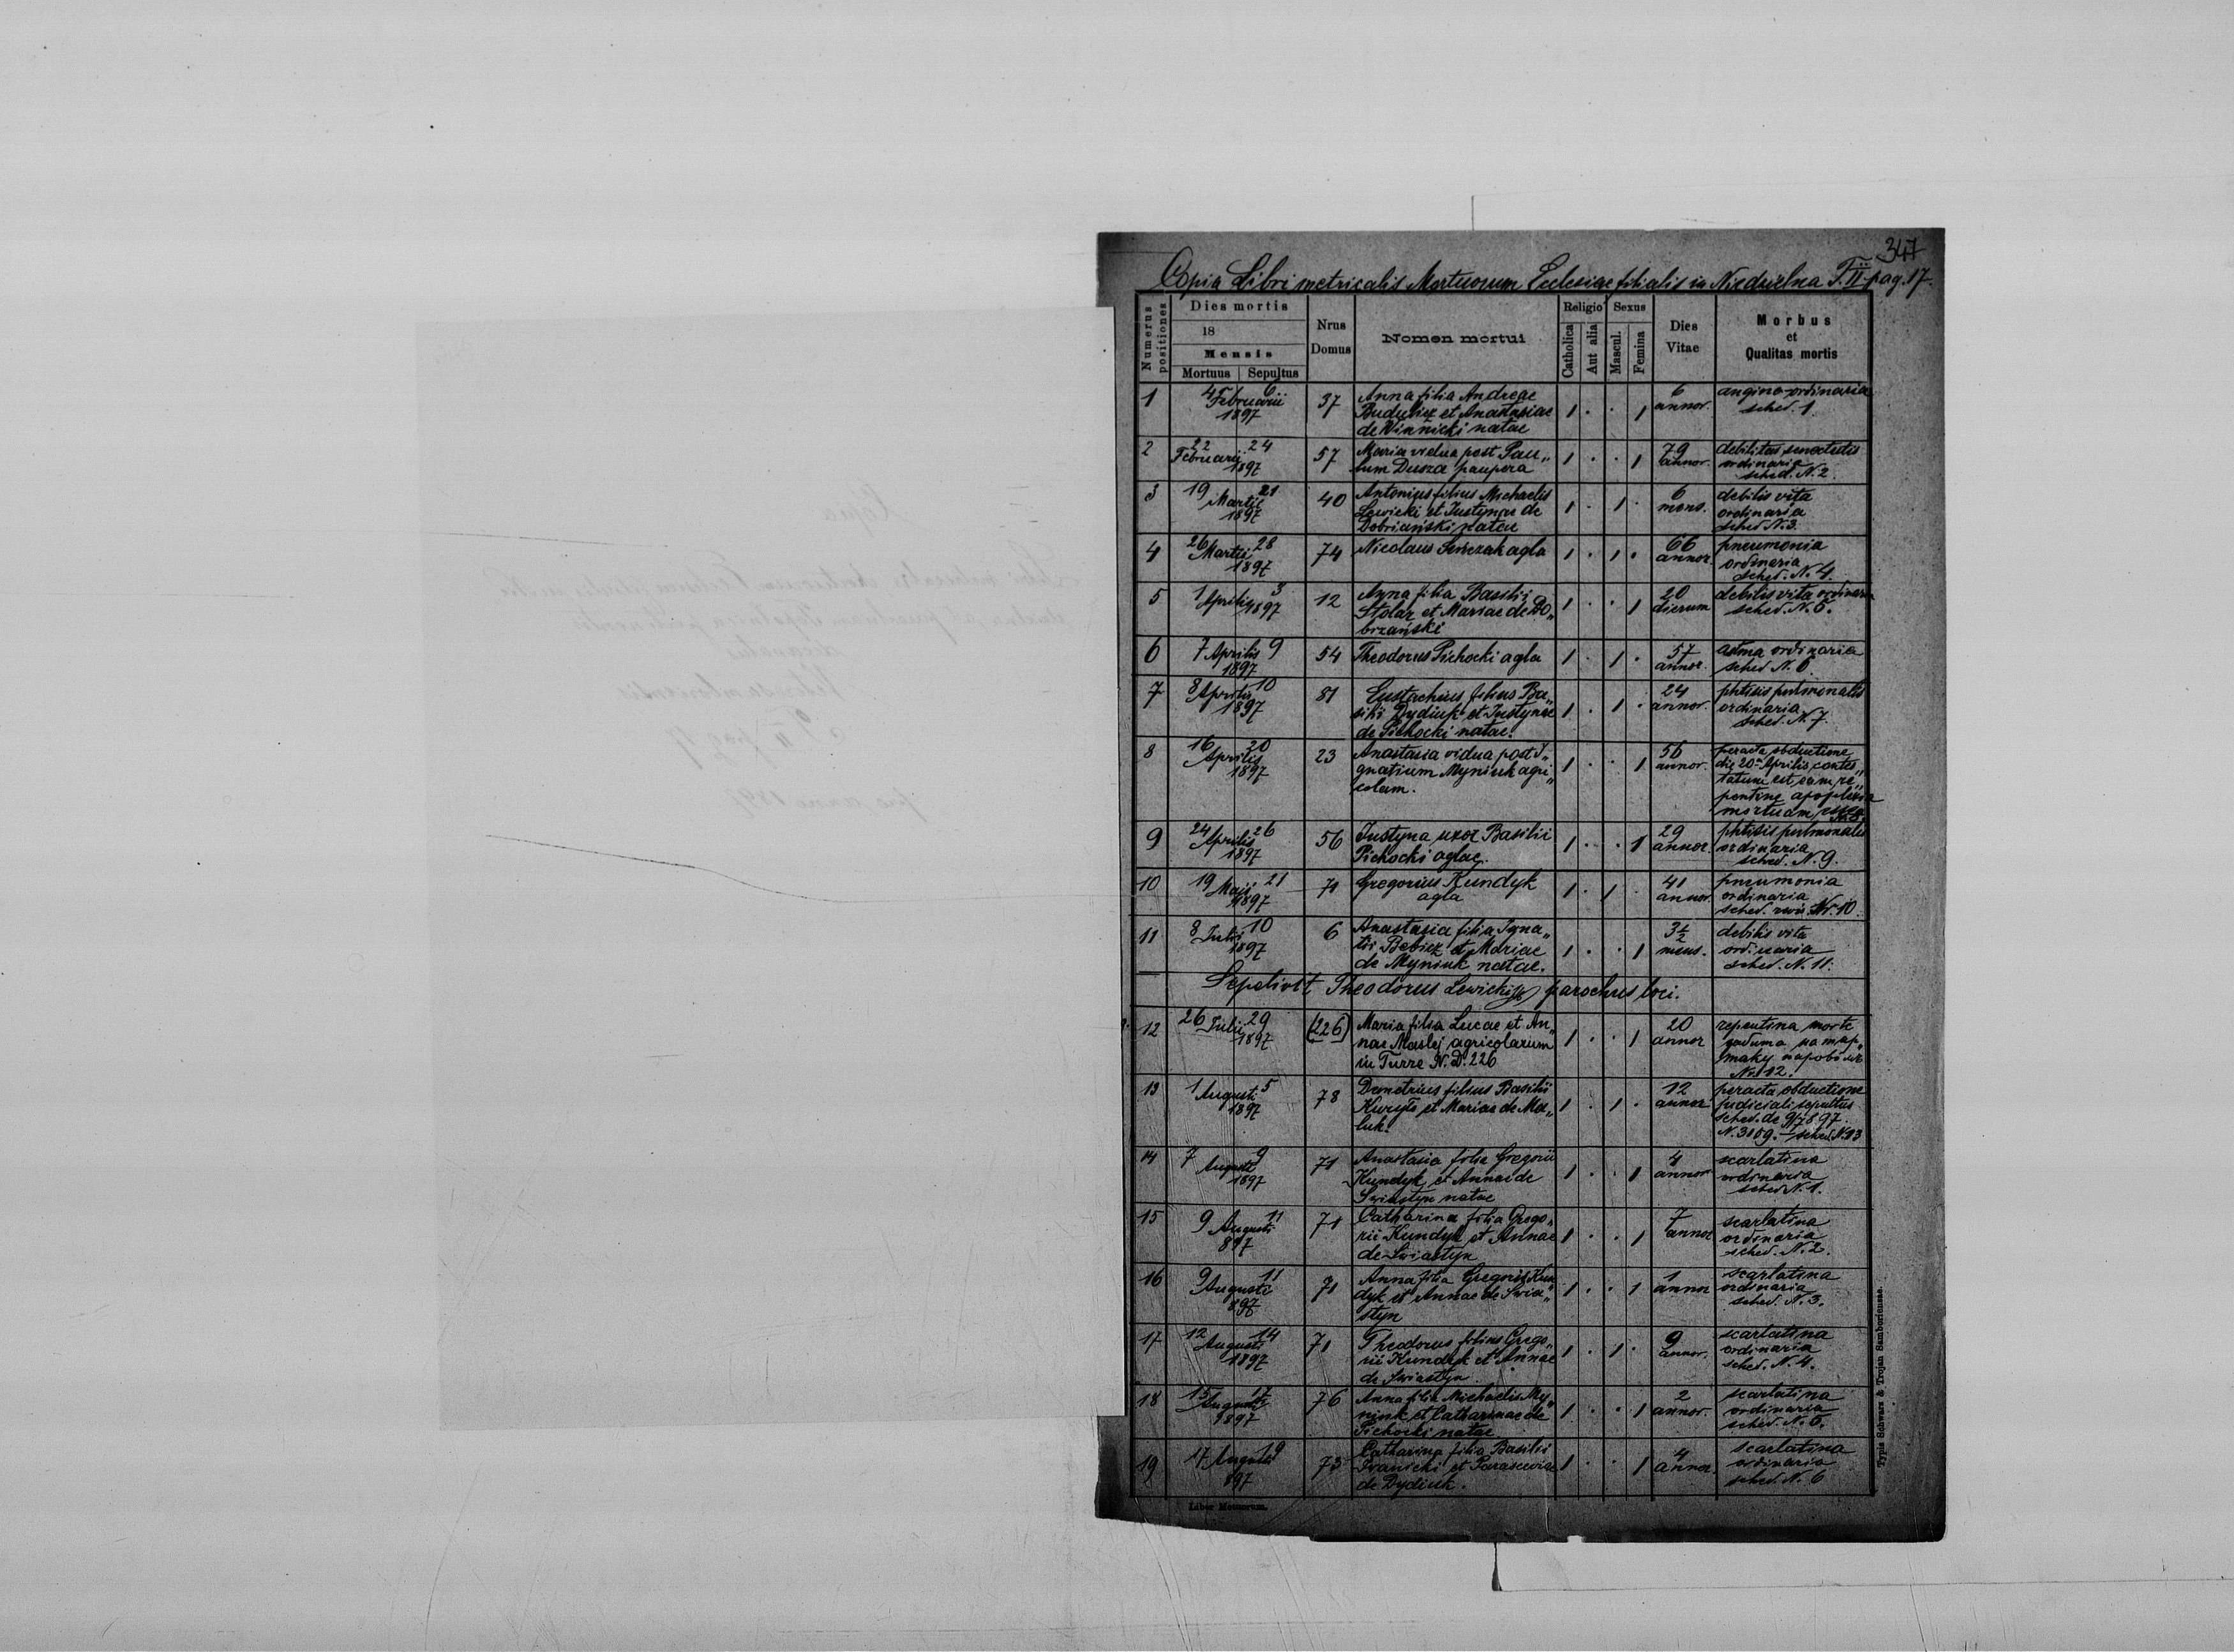 347
Copia Libri metricalis Mortuorum Ecclesiae filialis in Niedzielna T. II pag. 17.
Numerus positiones
Dies mortis
18
Mensis
Mortuus Sepultus
Nrus Domus
Nomen mortui
Religio
Catholica Aut alia
Sexus
Mascul. Femina
Dies Vitae
Morbus et Qualitas mortis
1 4 Februarii 6 37 Anna filia Andreae 1 . . 1 6 angina ordinaria
1897 annor. sched. 1.
et Anastasiae
de Winnicki natae
2 22 24 57 Maria vidua post Pau„ 1 . . 1 79 debilitas senectutis
Februarii 1897 lum Dusza paupera annor. ordinaria
sched. N. 2.
3 19 Martii 21 40 Antonius filius Michaelis 1 . 1 . 6 debilis vita
1897 Lewicki et Justynae de mens. ordinaria
Dobriański natae sched. N. 3.
4 26 Martii 28 74 Nicolaus agla 1 . 1 . 66 pneumonia
1897 annor. ordinaria
sched. N. 4.
5 1 Aprilis 3 12 Anna filia Basilii 1 . . 1 20 debilis vita ordinaria
1897 Stolar et Mariae de Do„ dierum sched. N. 5.
brzański
6 7 Aprilis 9 54 Theodorus Pichocki agla 1 . 1 . 57 astma ordinaria
1897 annor. sched. N. 6.
7 8 Aprilis 10 81 Eustachius filius Ba„ 1 . 1 . 24 phtisis pulmonalis
1897 silii Dydiuk et Justynae annor. ordinaria
de Pichocki natae. sched. N. 7.
8 16 Aprilis 20 23 Anastasia vidua post I„ 1 . . 1 56 peracta obductione
1897 gnatium Myniuk agri„ annor. die 20 Aprilis contes„
colam. tatum est eam re„
pentine apoplexia
mortuam
9 24 Aprilis 26 56 Justyna uxor Basilii 1 . . 1 29 phtisis pulmonalis
1897 Pichocki aglae. annor. ordinaria
sched. N. 9.
10 19 Maji 21 71 Gregorius Kundyk 1 . 1 . 41 pneumonia
1897 agla annor. ordinaria
sched. N. 10.
11 8 Julii 10 6 Anastasia filia Igna„ 1 . . 1 3 1/2 debilis vita
1897 tii et Mariae mens. ordinaria
de Myniuk natae. sched. N. 11.
Sepelivit Theodorus Lewicki parochus loci.
12 26 Julii 29 (226) Maria filia Lucae et An„ 1 . . 1 20 repentina morte
1897 nae Maslej agricolarum annor
in Turre N. D. 226 N. 12.
13 1 Augusti 5 78 Demetrius filius Basilii 1 . 1 . 12 peracta obductione
1897 et Mariae de Ma„ annor judiciali sepultus
luk. sched. de 9/7 897
N. 3159. sched. N. 13
14 7 Augusti 9 71 Anastasia filia Gregorii 1 . . 1 4 scarlatina
1897 Kundyk et Annae de annor ordinaria
Swiastyn natae sched. N. 1.
15 9 Augusti 11 71 Catharina filia Grego„ 1 . . 1 7 scarlatina
897 rii Kundyk et Annae annor ordinaria
de Swiastyn sched. N. 2.
16 9 Augusti 11 71 Anna filia Gregorii Kun„ 1 . . 1 1 scarlatina
897 dyk et Annae de Swia„ annor ordinaria
styn sched. N. 3.
17 12 Augusti 14 71 Theodorus filius Grego„ 1 . 1 . 9 scarlatina
1897 rii Kundyk et Annae annor. ordinaria
de Swiastyn sched. N. 4.
18 15 Augusti 17 76 Anna filia Michaelis My„ 1 . . 1 2 scarlatina
1897 niuk et Catharinae de annor. ordinaria
Pichocki natae sched. N. 5.
19 17 Augusti 19 73 Catharina filia Basilii 1 . . 1 4 scarlatina
897 Iwanicki et Parasceviae annor. ordinaria
de Dydiuk. sched. N. 6
Liber Mortuorum.
Typis Schwarz & Trojan Samboriensae.